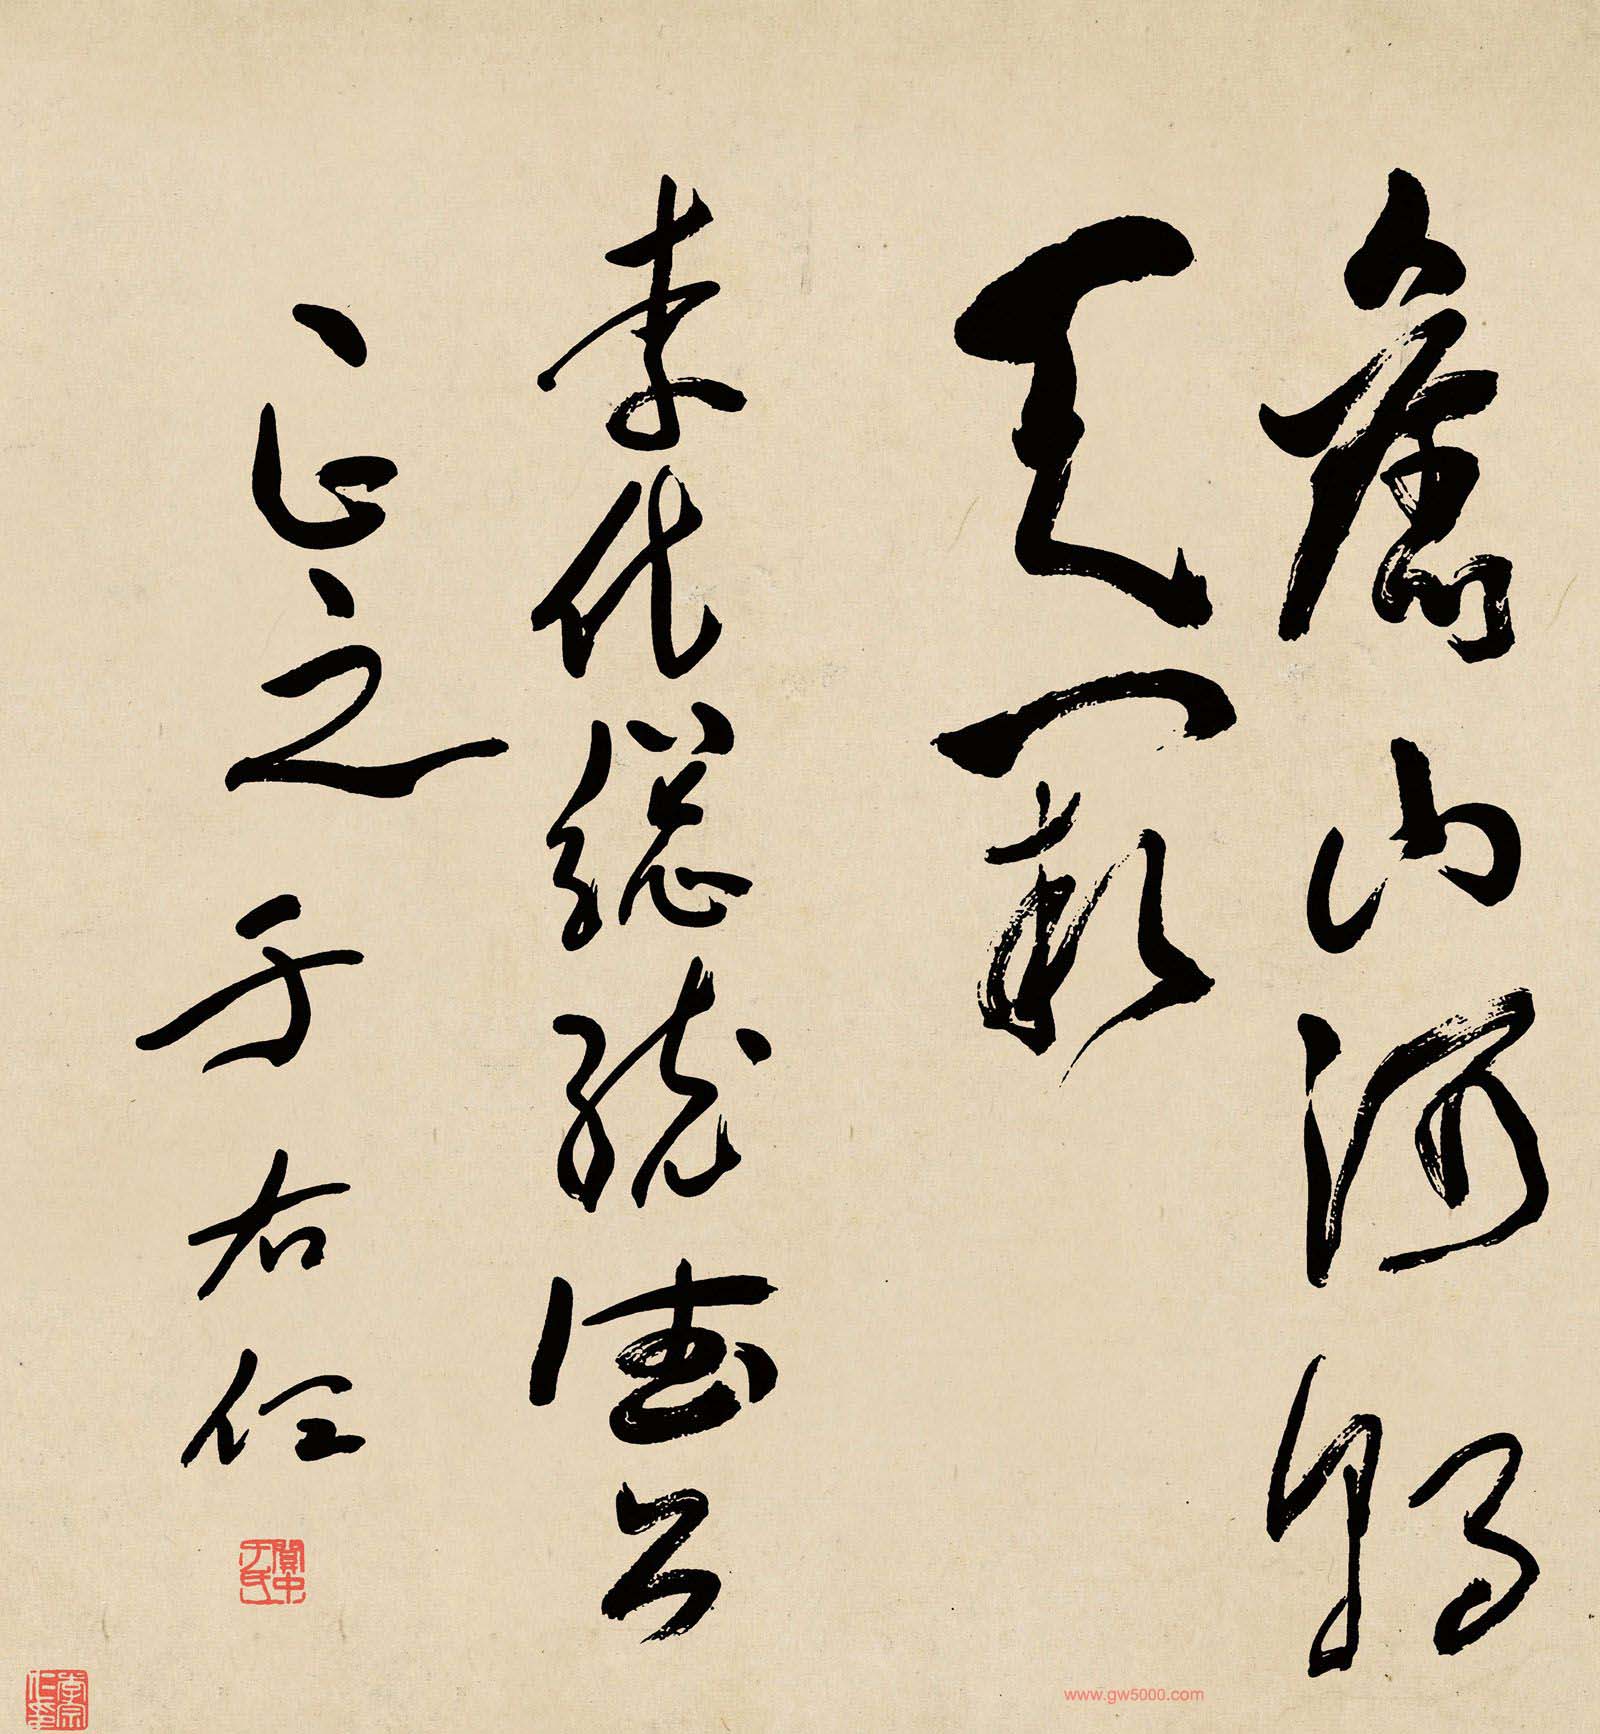 舊山河朝
天闕
李代總統德公
正之 于右任
關中于氏
www.gw5000.com